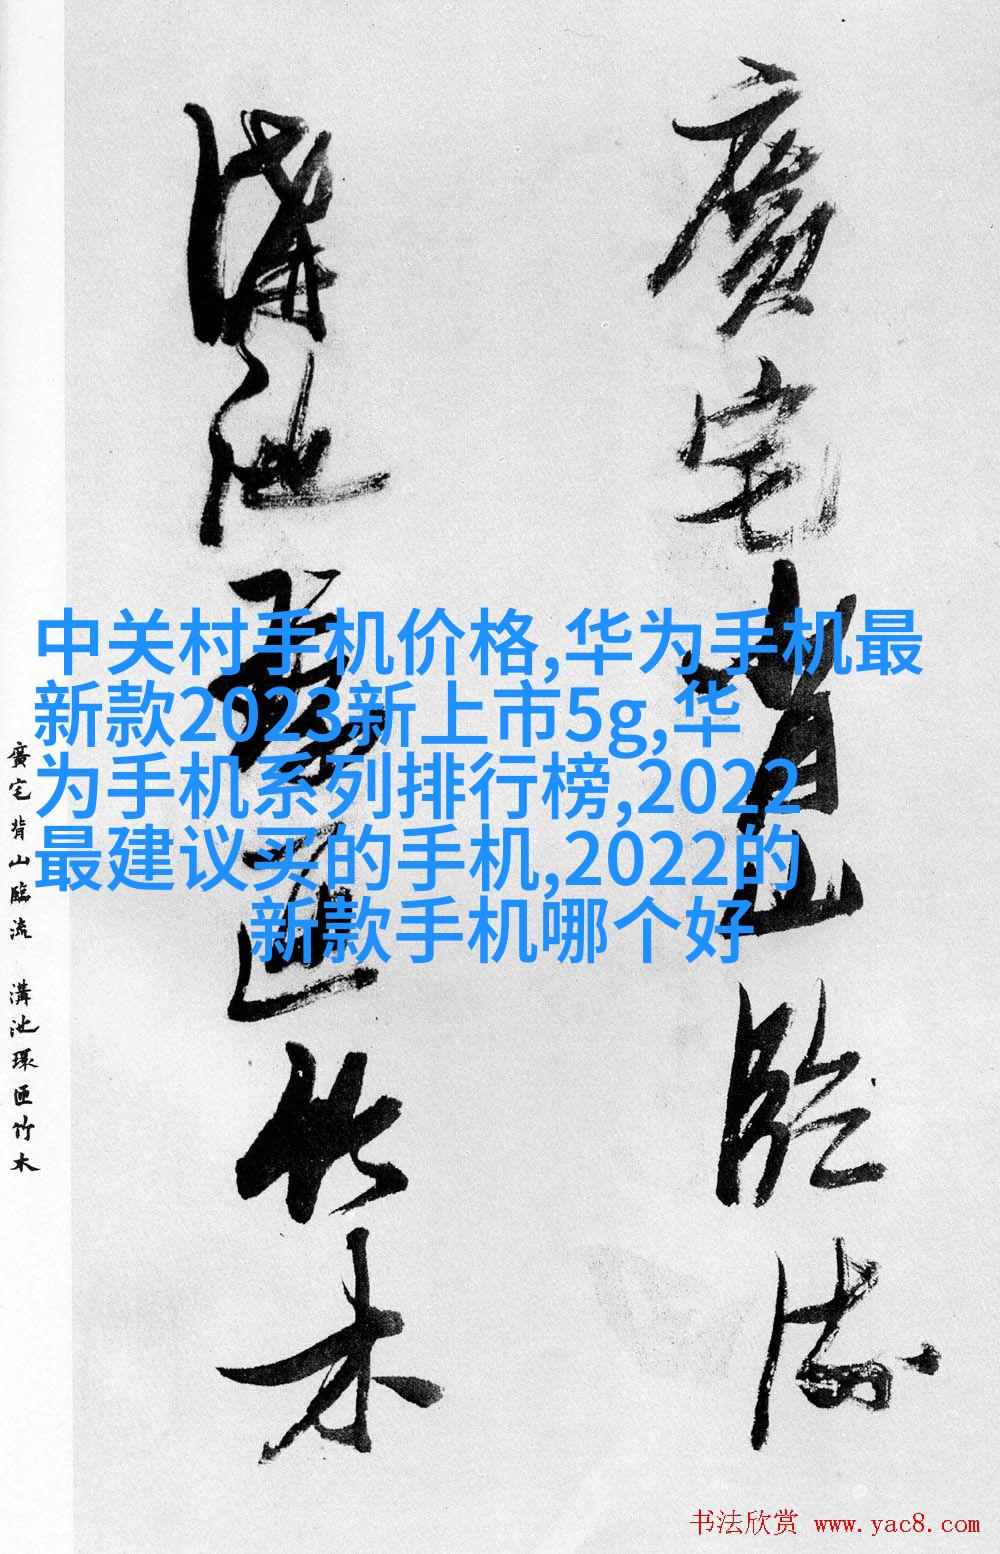 廣宅背山臨流
溝池環匝竹木
中关村手机价格,华为手机最
新款2023新上市5g,华
为手机系列排行榜,2022
最建议买的手机,2022的
新款手机哪个好
廣宅背山臨流 溝池環匝竹木
书法欣赏 www.yac8.com